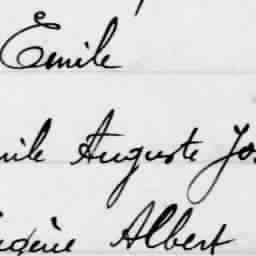 Emile
mile Auguste Jos
ugène Albert